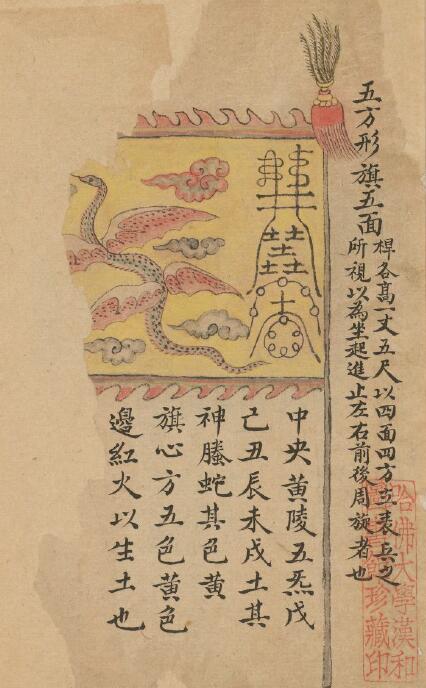 五方形旗五面
桿各高一丈五尺以四面四方立表兵之
所視以為坐起進止左右前後周旋者也
中央黄陵五炁戊
己丑辰未戌土其
神螣蛇其色黄
旗心方五色黄色
邊紅火以生土也
哈佛大學漢和
圖書館珍藏印